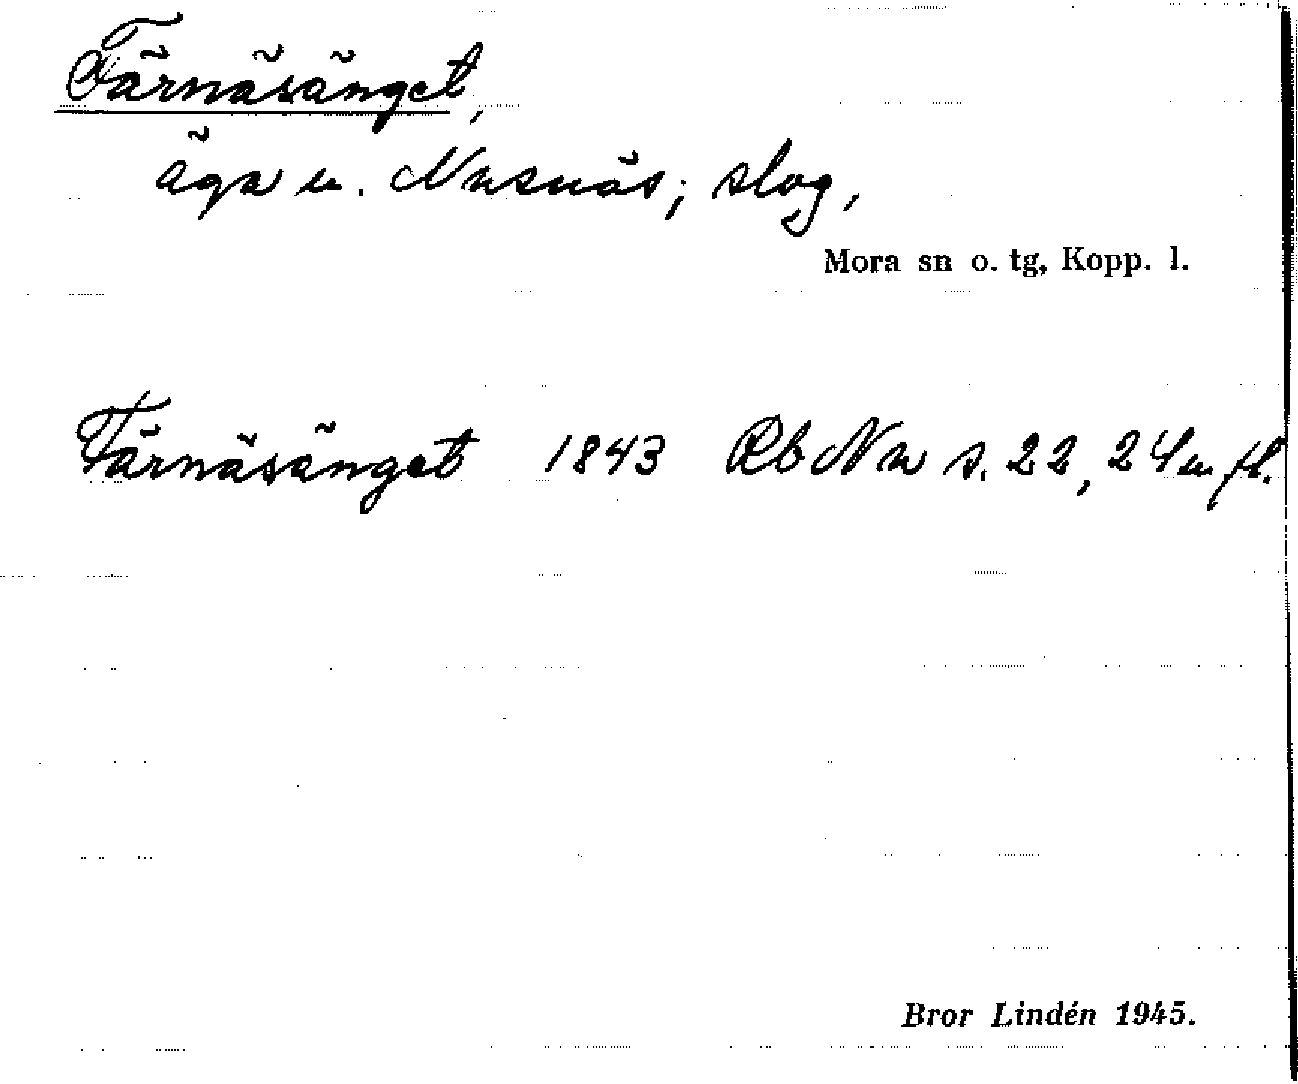 Färnäsänget,
äga u. Nusnäs; slog,
Mora sn o. tg, Kopp. l.
Färnäsänget 1843 Rb Nu s. 22, 24 m fl.
Bror Lindén 1945.